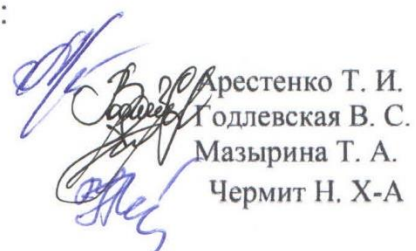 :
Арестенко Т. И.
Годлевская В. С.
Мазырина Т. А.
Чермит Н. Х-А